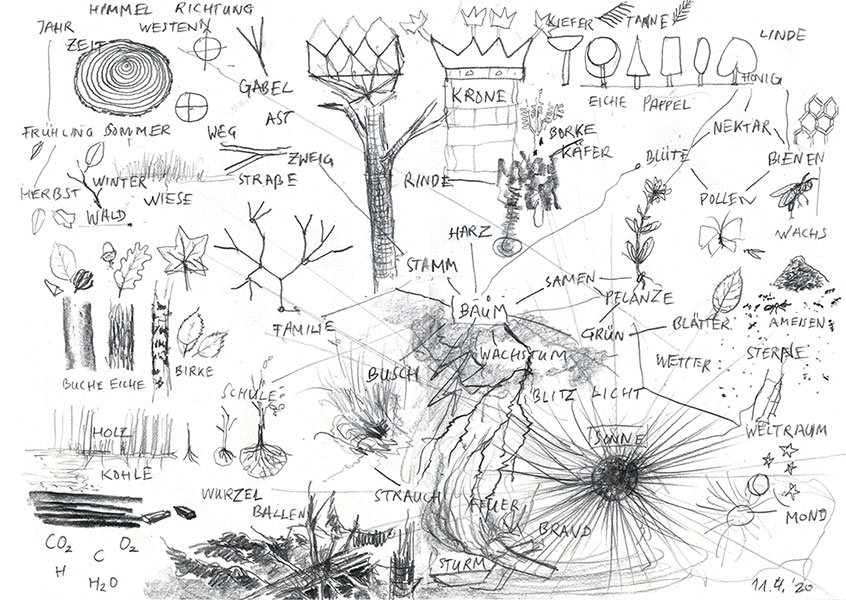 HIMMEL RICHTUNG
JAHR
WESTEN
KIEFER
TANNE
LINDE
ZEIT
HONIG
GABEL
KRONE
EICHE PAPPEL
AST
FRÜHLING SOMMER
WEG
BORKE
KÄFER
NEKTAR
ZWEIG
BLÜTE
BIENEN
HERBST
WINTER
STRAßE
RINDE
WIESE
POLLEN
WALD
HARZ
WACHS
STAMM
SAMEN
PFLANZE
BAUM
FAMILIE
GRÜN
BLÄTTER
AMEISEN
WACHSTUM
WETTER
STERNE
BUCHE EICHE
BIRKE
BUSCH
SCHULE
BLITZ LICHT
HOLZ
SONNE
WELTRAUM
KOHLE
WURZEL
BALLEN
STRAUCH
FEUER
MOND
BRAND
CO2
C
O2
H
H2O
STURM
11.4.'20